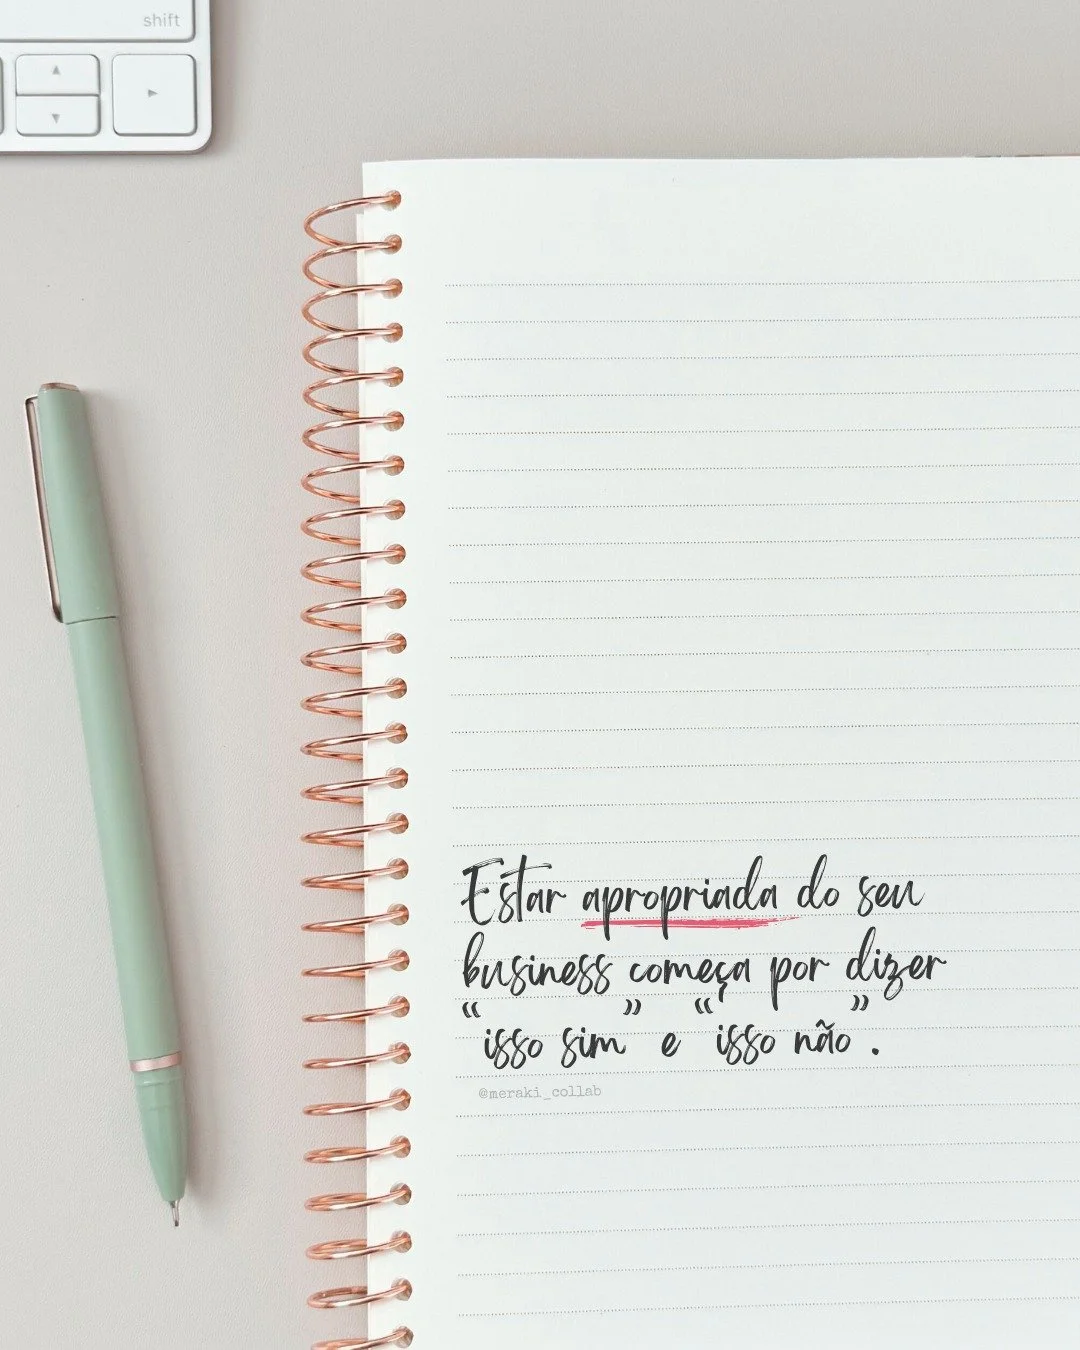 shift
Estar apropriada do seu
business começa por dizer
“isso sim” e “isso não”.
@meraki_collab